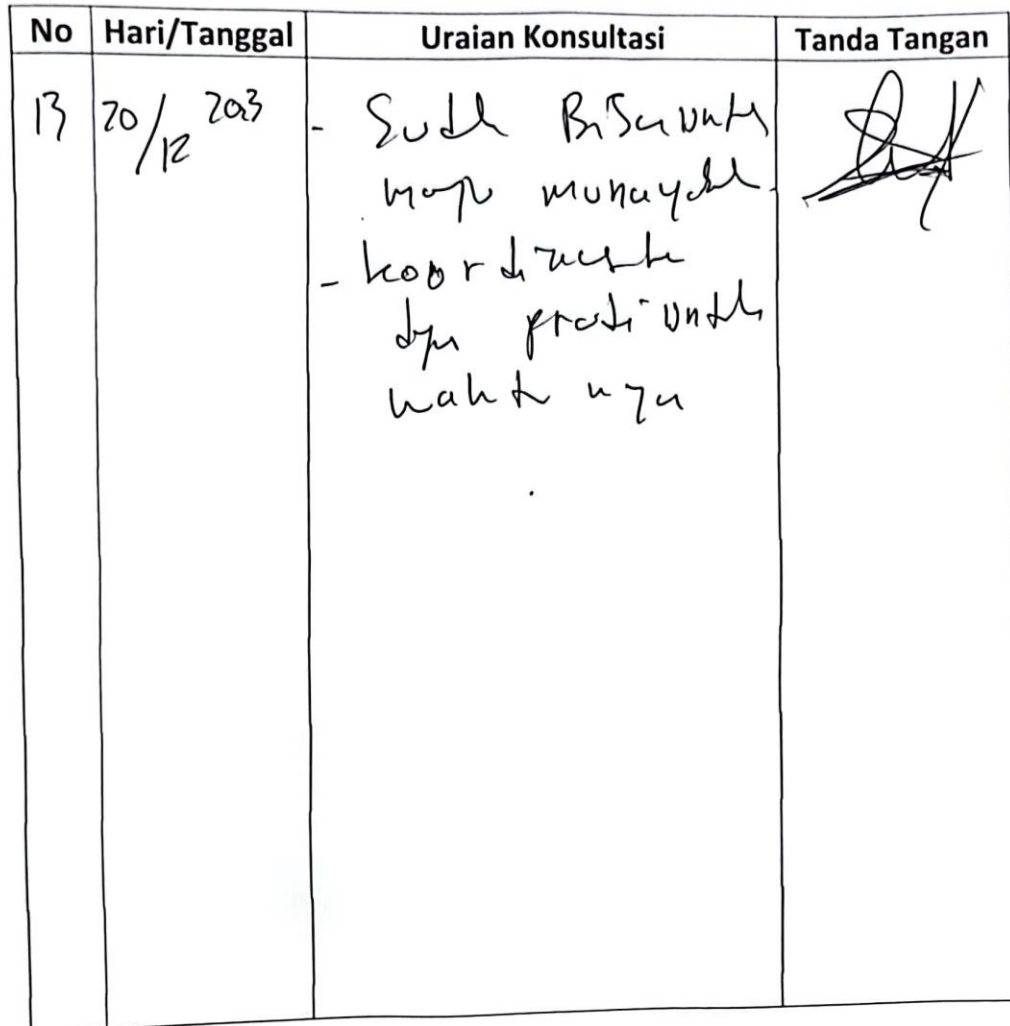 No Hari/Tanggal Uraian Konsultasi Tanda Tangan
13 20/12 2023 - Sudah Bisa untuk
maju munaqasah.
- koordinasikan
dgn prodi untuk
waktu nya